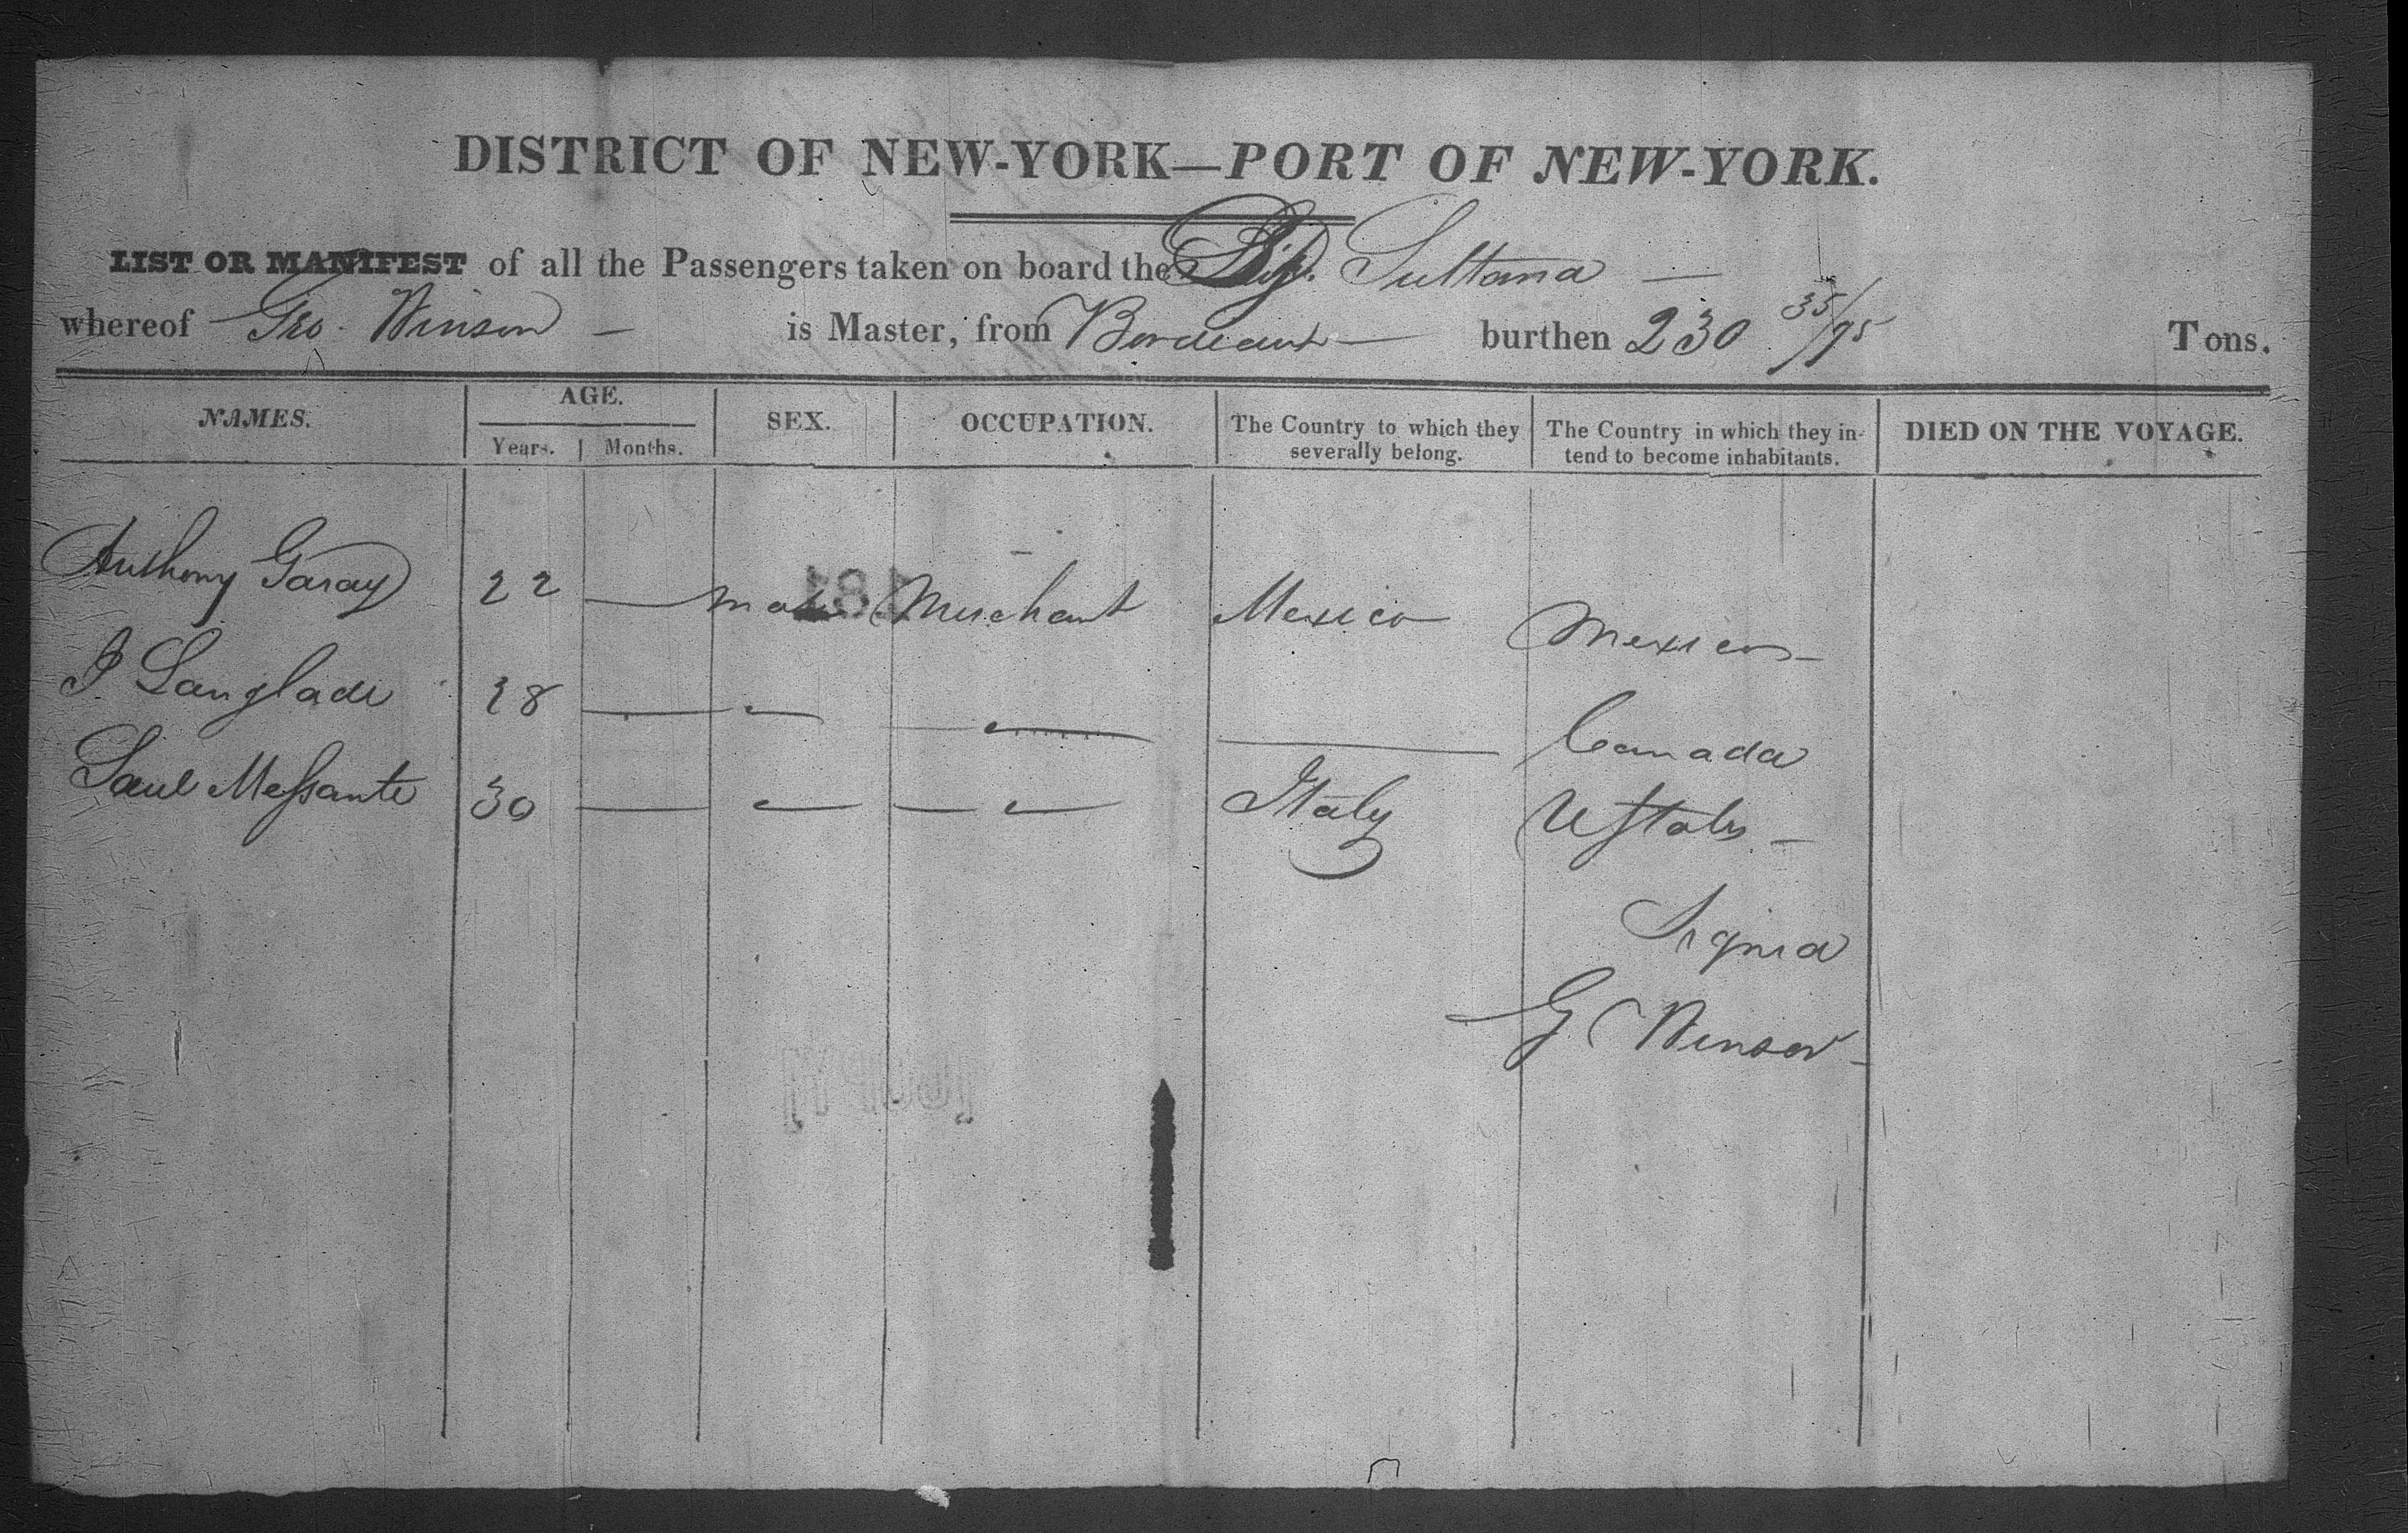 DISTRICT OF NEW-YORK—PORT OF NEW-YORK.
LIST OR MANIFEST of all the Passengers taken on board the Sultana —
whereof Geo. Winson — is Master, from Bordeaux — burthen 230 35/95 Tons.
NAMES. AGE. SEX. OCCUPATION. The Country to which they severally belong. The Country in which they intend to become inhabitants. DIED ON THE VOYAGE.
Years. Months.
Anthony Garay 22 — male Merchant Mexico Mexico —
J Langlade 28 — — — — Canada
Saul Messante 30 — — — — Italy UStates —
Signed
G Winsor —
181